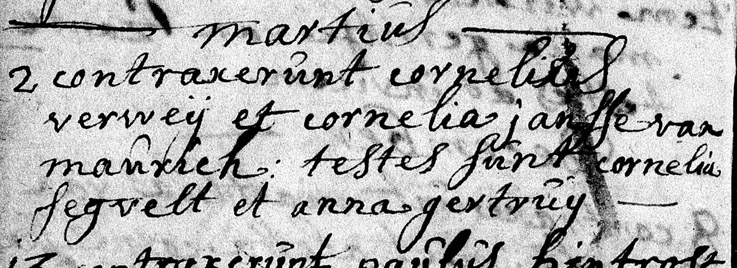 martius
2 contraxerunt cornelius
verweij et cornelia janssè van
maurich: testes sunt cornelia
segvelt et anna gertruij
13 contraxerunt paulus hintrost